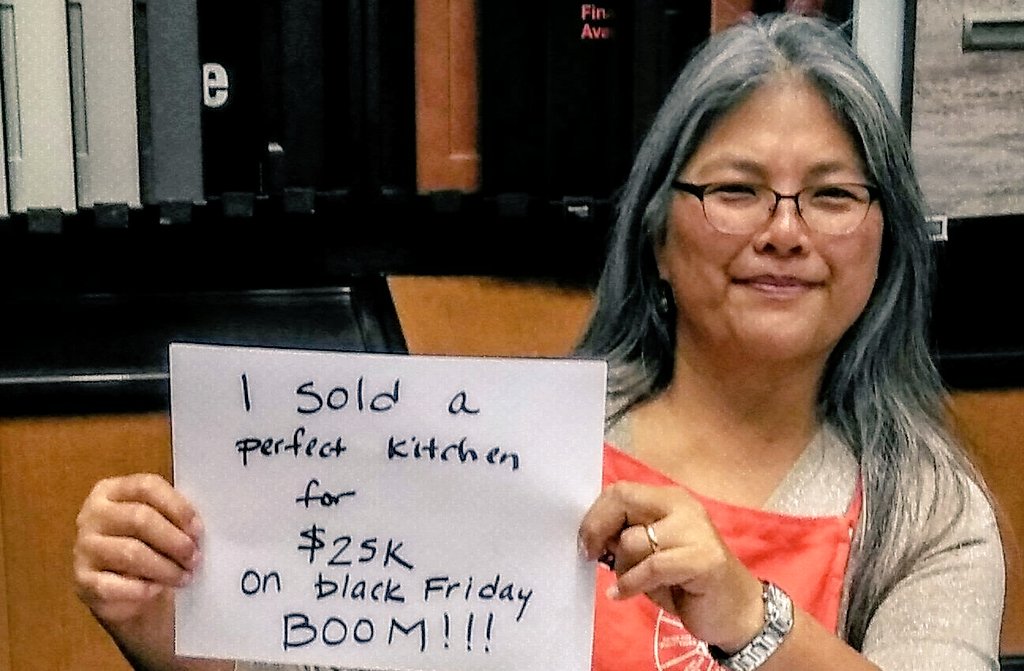 e
Fin
Ave
I sold a
perfect kitchen
for
$25K
on black Friday
BOOM!!!